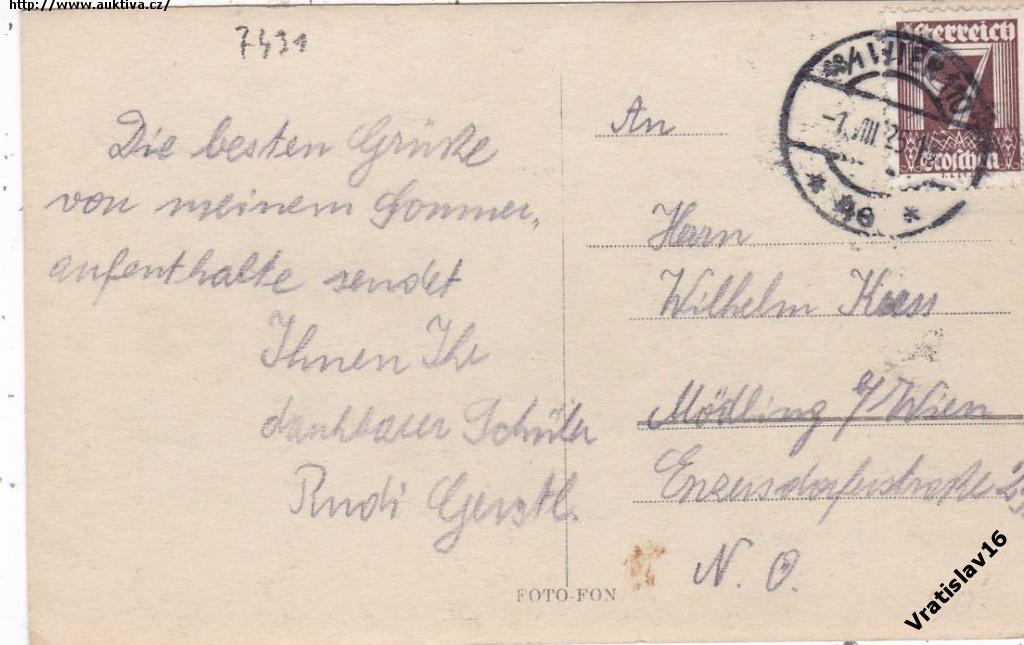 http://www.auktiva.cz/
7431
Die besten Grüße
von meinem Sommer-
aufenthalte sendet
Ihnen Ihr
dankbarer Schüler
Rudi Gerstl.
FOTO-FON
Österreich
7
Groschen
-1.VIII.25
* *
An
Herrn
Wilhelm Kress
Mödling b/Wien
Enzersdorferstraße
N. Ö.
Vratislav16